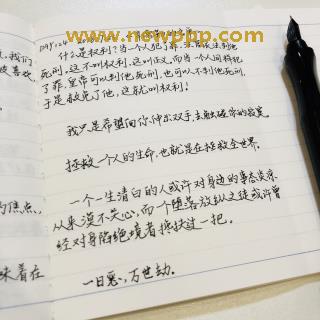 www.newdsp.com
什么是权利?当一个人犯了罪,法官依法判他
死刑,这不叫权利,这叫正义,而当一个人同样犯
了罪,皇帝可以判他死刑,也可以不判他死刑,
于是赦免了他,这就叫权利!
我只是希望向你伸出双手,去触碰你的寂寞。
拯救一个人的生命,也就是在拯救全世界。
一个一生清白的人或许对身边的事态炎凉
从来漠不关心,而一个堕落放纵之徒或许曾
经对身陷绝境者搀扶过一把。
一日恶,万世劫。
我们
喜欢
的焦点,
味着在